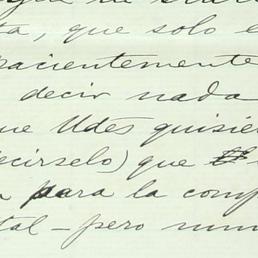 ta, que solo e
pacientemente
decir nada
que Udes quisie
decirselo) que
para la comp
tal - pero nun